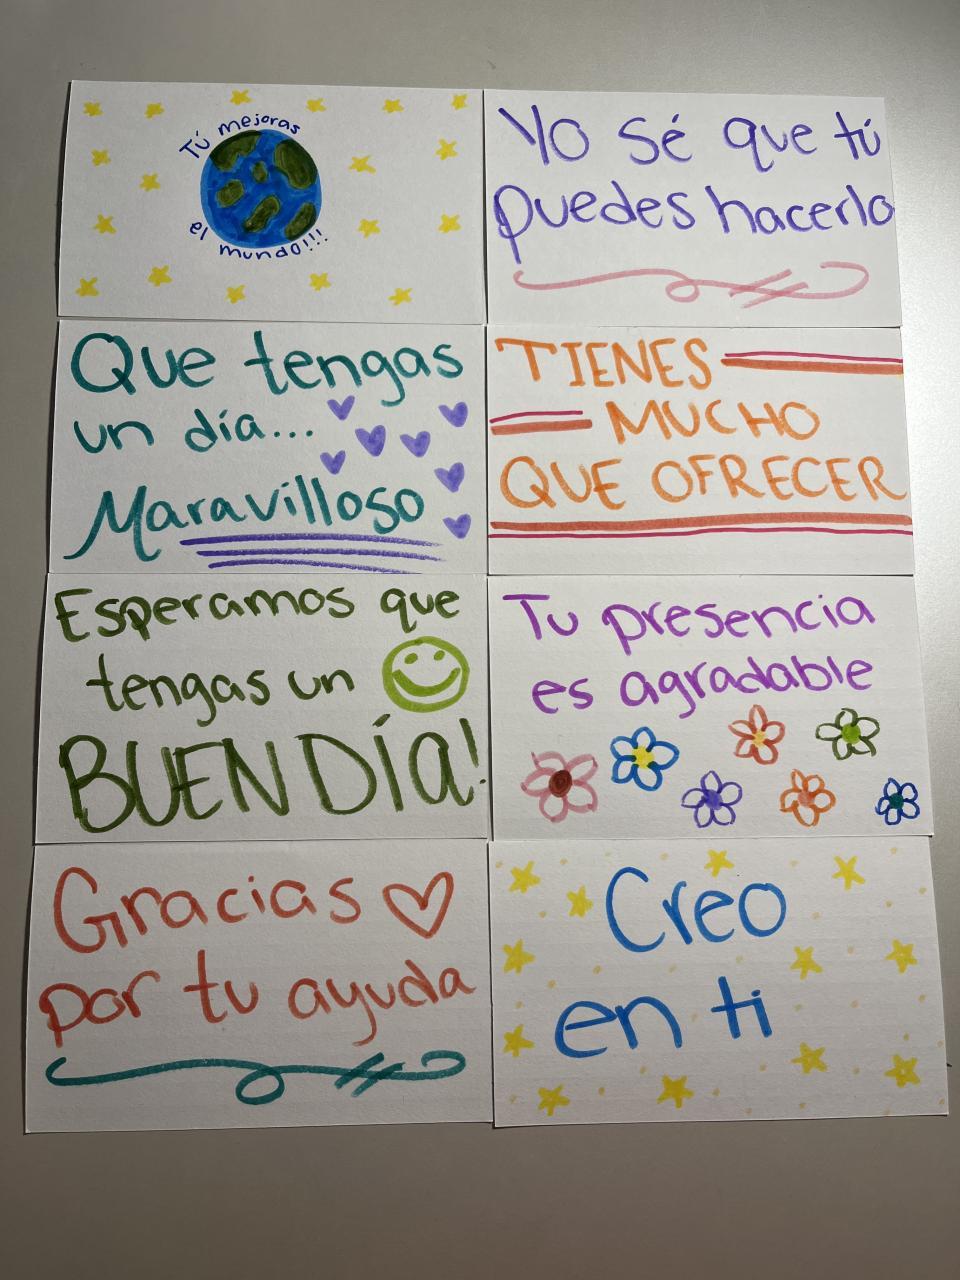 Tú mejoras
el mundo!!!
Yo sé que tú
puedes hacerlo
Que tengas
un día...
Maravilloso
TIENES
MUCHO
QUE OFRECER
Esperamos que
tengas un
BUEN DÍA!
Tu presencia
es agradable
Gracias
por tu ayuda
Creo
en ti